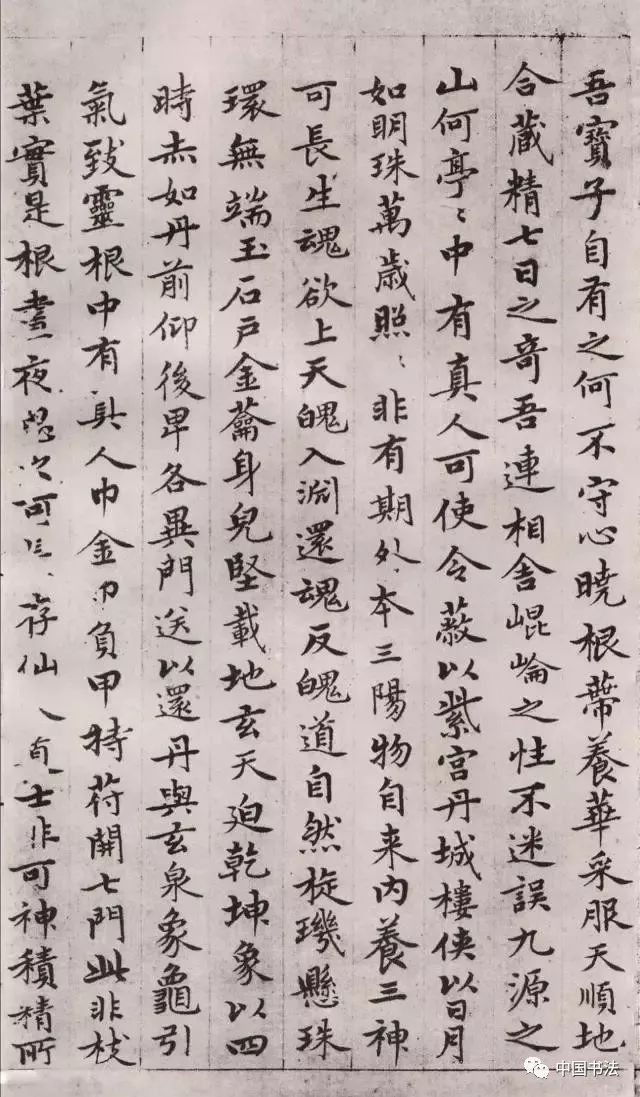 吾寶子自有之何不守心曉根蔕養華采服天順地
合藏精七日之奇吾連相舍崐崘之性不迷誤九源之
山何亭〻中有真人可使令蔽以紫宫丹城樓侠以日月
如明珠萬歲照〻非有期外本三陽物自来内養三神
可長生魂欲上天魄入淵還魂反魄道自然㫌璣懸珠
環無端玉石戸金蘥身皃堅載地玄天迫乾坤象以四
時赤如丹前仰後卑各異門送以還丹與玄泉象龜引
氣致靈根中有真人巾金巾負甲持苻開七門此非枝
葉實是根晝夜思之可長存仙人道士非可神積精所
中国书法